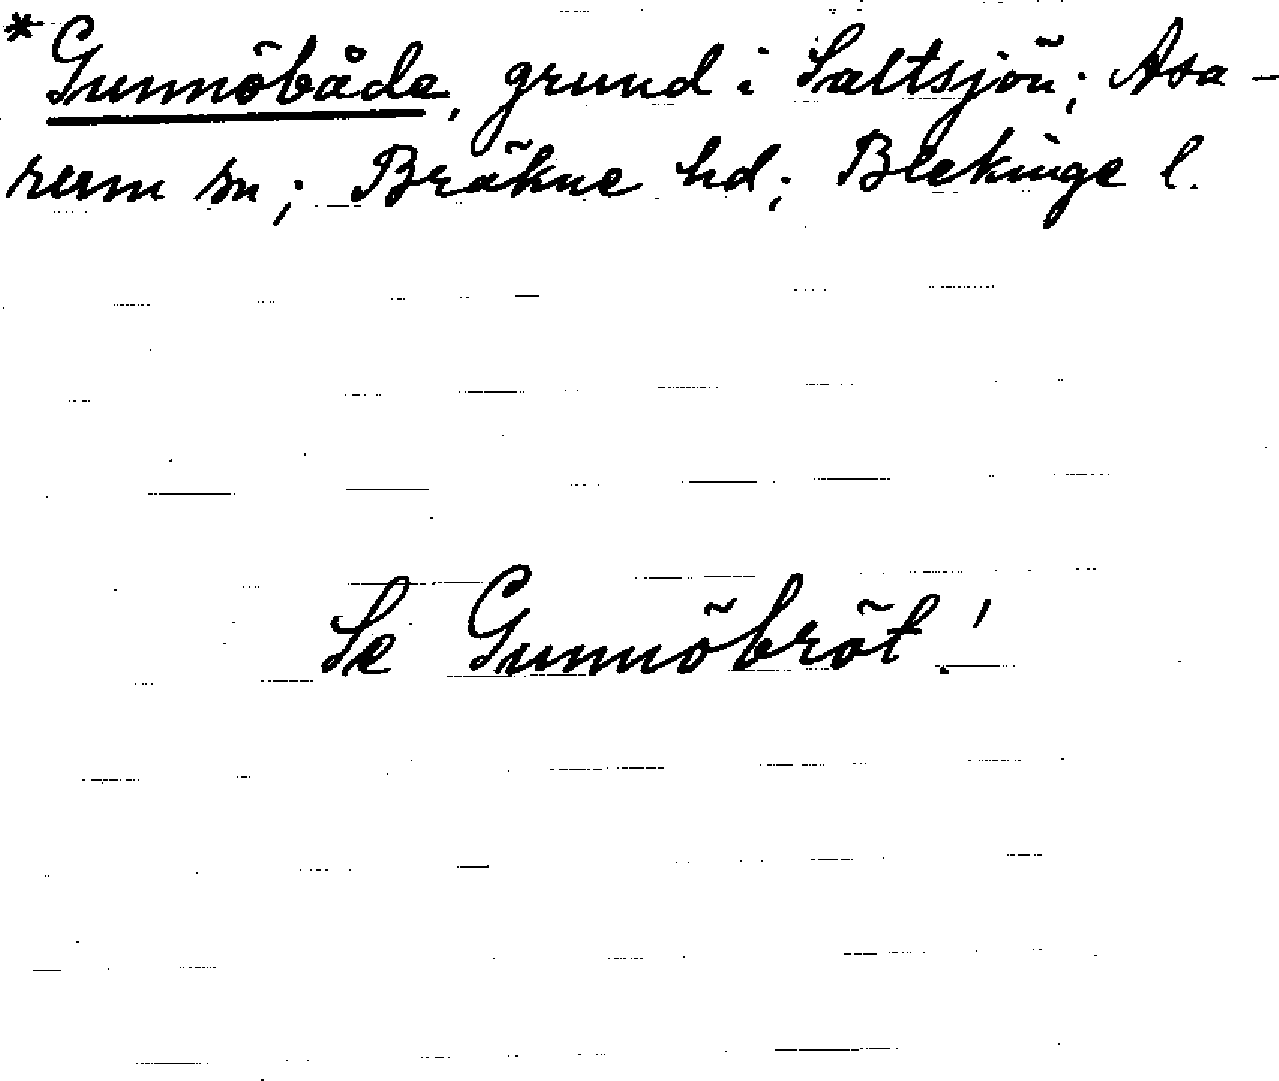 *Gunnöbåda, grund i Saltsjön; Asa-
rum sn; Bräkne hd; Blekinge l.
Se Gunnöbröt!